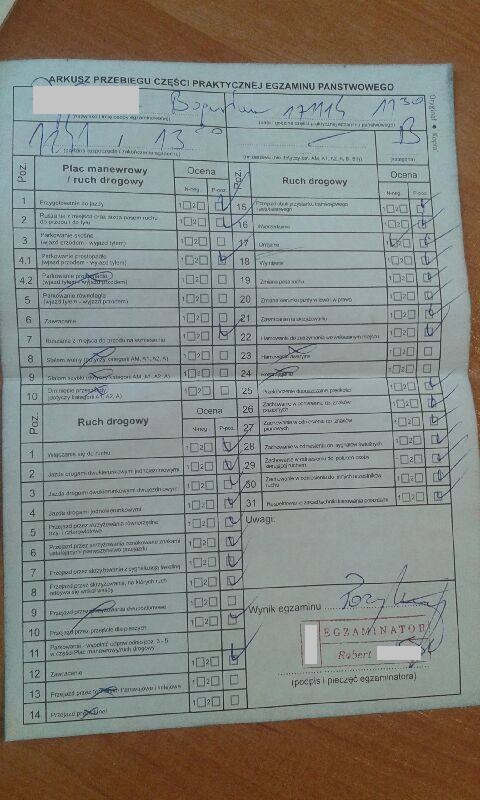 ARKUSZ PRZEBIEGU CZĘŚCI PRAKTYCZNEJ EGZAMINU PAŃSTWOWEGO
1130
Oryginał • Kopia
B
(kategoria)
Poz.
Plac manewrowy / ruch drogowy
Ocena
N-neg. P-poz.
1 Przygotowanie do jazdy 1 2
2 Ruszanie z miejsca oraz jazda pasem ruchu do przodu i do tyłu 1 2
3 Parkowanie skośne (wjazd przodem - wyjazd tyłem) 1 2
4.1 Parkowanie prostopadłe (wjazd przodem - wyjazd tyłem) 1 2
4.2 Parkowanie prostopadłe (wjazd tyłem - wyjazd przodem) 1 2
5 Parkowanie równoległe (wjazd tyłem - wyjazd przodem) 1 2
6 Zawracanie 1 2
7 Ruszanie z miejsca do przodu na wzniesieniu 1 2
8 Slalom wolny (dotyczy kategorii AM, A1, A2, A) 1 2
9 Slalom szybki (dotyczy kategorii AM, A1, A2, A) 1 2
10 Ominięcie przeszkody (dotyczy kategorii A1, A2, A) 1 2
Poz.
Ruch drogowy
Ocena
N-neg. P-poz.
1 Włączanie się do ruchu 1 2
2 Jazda drogami dwukierunkowymi jednojezdniowymi 1 2
3 Jazda drogami dwukierunkowymi dwujezdniowymi 1 2
4 Jazda drogami jednokierunkowymi 1 2
5 Przejazd przez skrzyżowania równorzędne trzy- i czterowlotowe 1 2
6 Przejazd przez skrzyżowania oznakowane znakami ustalającymi pierwszeństwo przejazdu 1 2
7 Przejazd przez skrzyżowania z sygnalizacją świetlną 1 2
8 Przejazd przez skrzyżowania, na których ruch odbywa się wokół wyspy 1 2
9 Przejazd przez skrzyżowania dwupoziomowe 1 2
10 Przejazd przez przejście dla pieszych 1 2
11 Parkowanie - wypełnić odpowiednio poz. 3 - 5 w części Plac manewrowy/ruch drogowy 1 2
12 Zawracanie 1 2
13 Przejazd przez torowisko tramwajowe i kolejowe 1 2
14 Przejazd przez tunel 1 2
Poz.
Ruch drogowy
Ocena
N-neg. P-poz.
15 Przejazd obok przystanku tramwajowego i autobusowego 1 2
16 Wyprzedzanie 1 2
17 Omijanie 1 2
18 Wymijanie 1 2
19 Zmiana pasa ruchu 1 2
20 Zmiana kierunku jazdy w lewo i w prawo 1 2
21 Zawracanie na skrzyżowaniu 1 2
22 Hamowanie do zatrzymania we wskazanym miejscu 1 2
23 Hamowanie awaryjne 1 2
24 1 2
25 1 2
26 Zachowanie w odniesieniu do znaków poziomych 1 2
27 Zachowanie w odniesieniu do znaków pionowych 1 2
28 Zachowanie w odniesieniu do sygnałów świetlnych 1 2
29 Zachowanie w odniesieniu do poleceń osoby kierującej ruchem 1 2
30 Zachowanie w odniesieniu do innych uczestników ruchu 1 2
31 Respektowanie zasad techniki kierowania pojazdami 1 2
Uwagi:
Wynik egzaminu
EGZAMINATOR
Robert
(podpis i pieczęć egzaminatora)